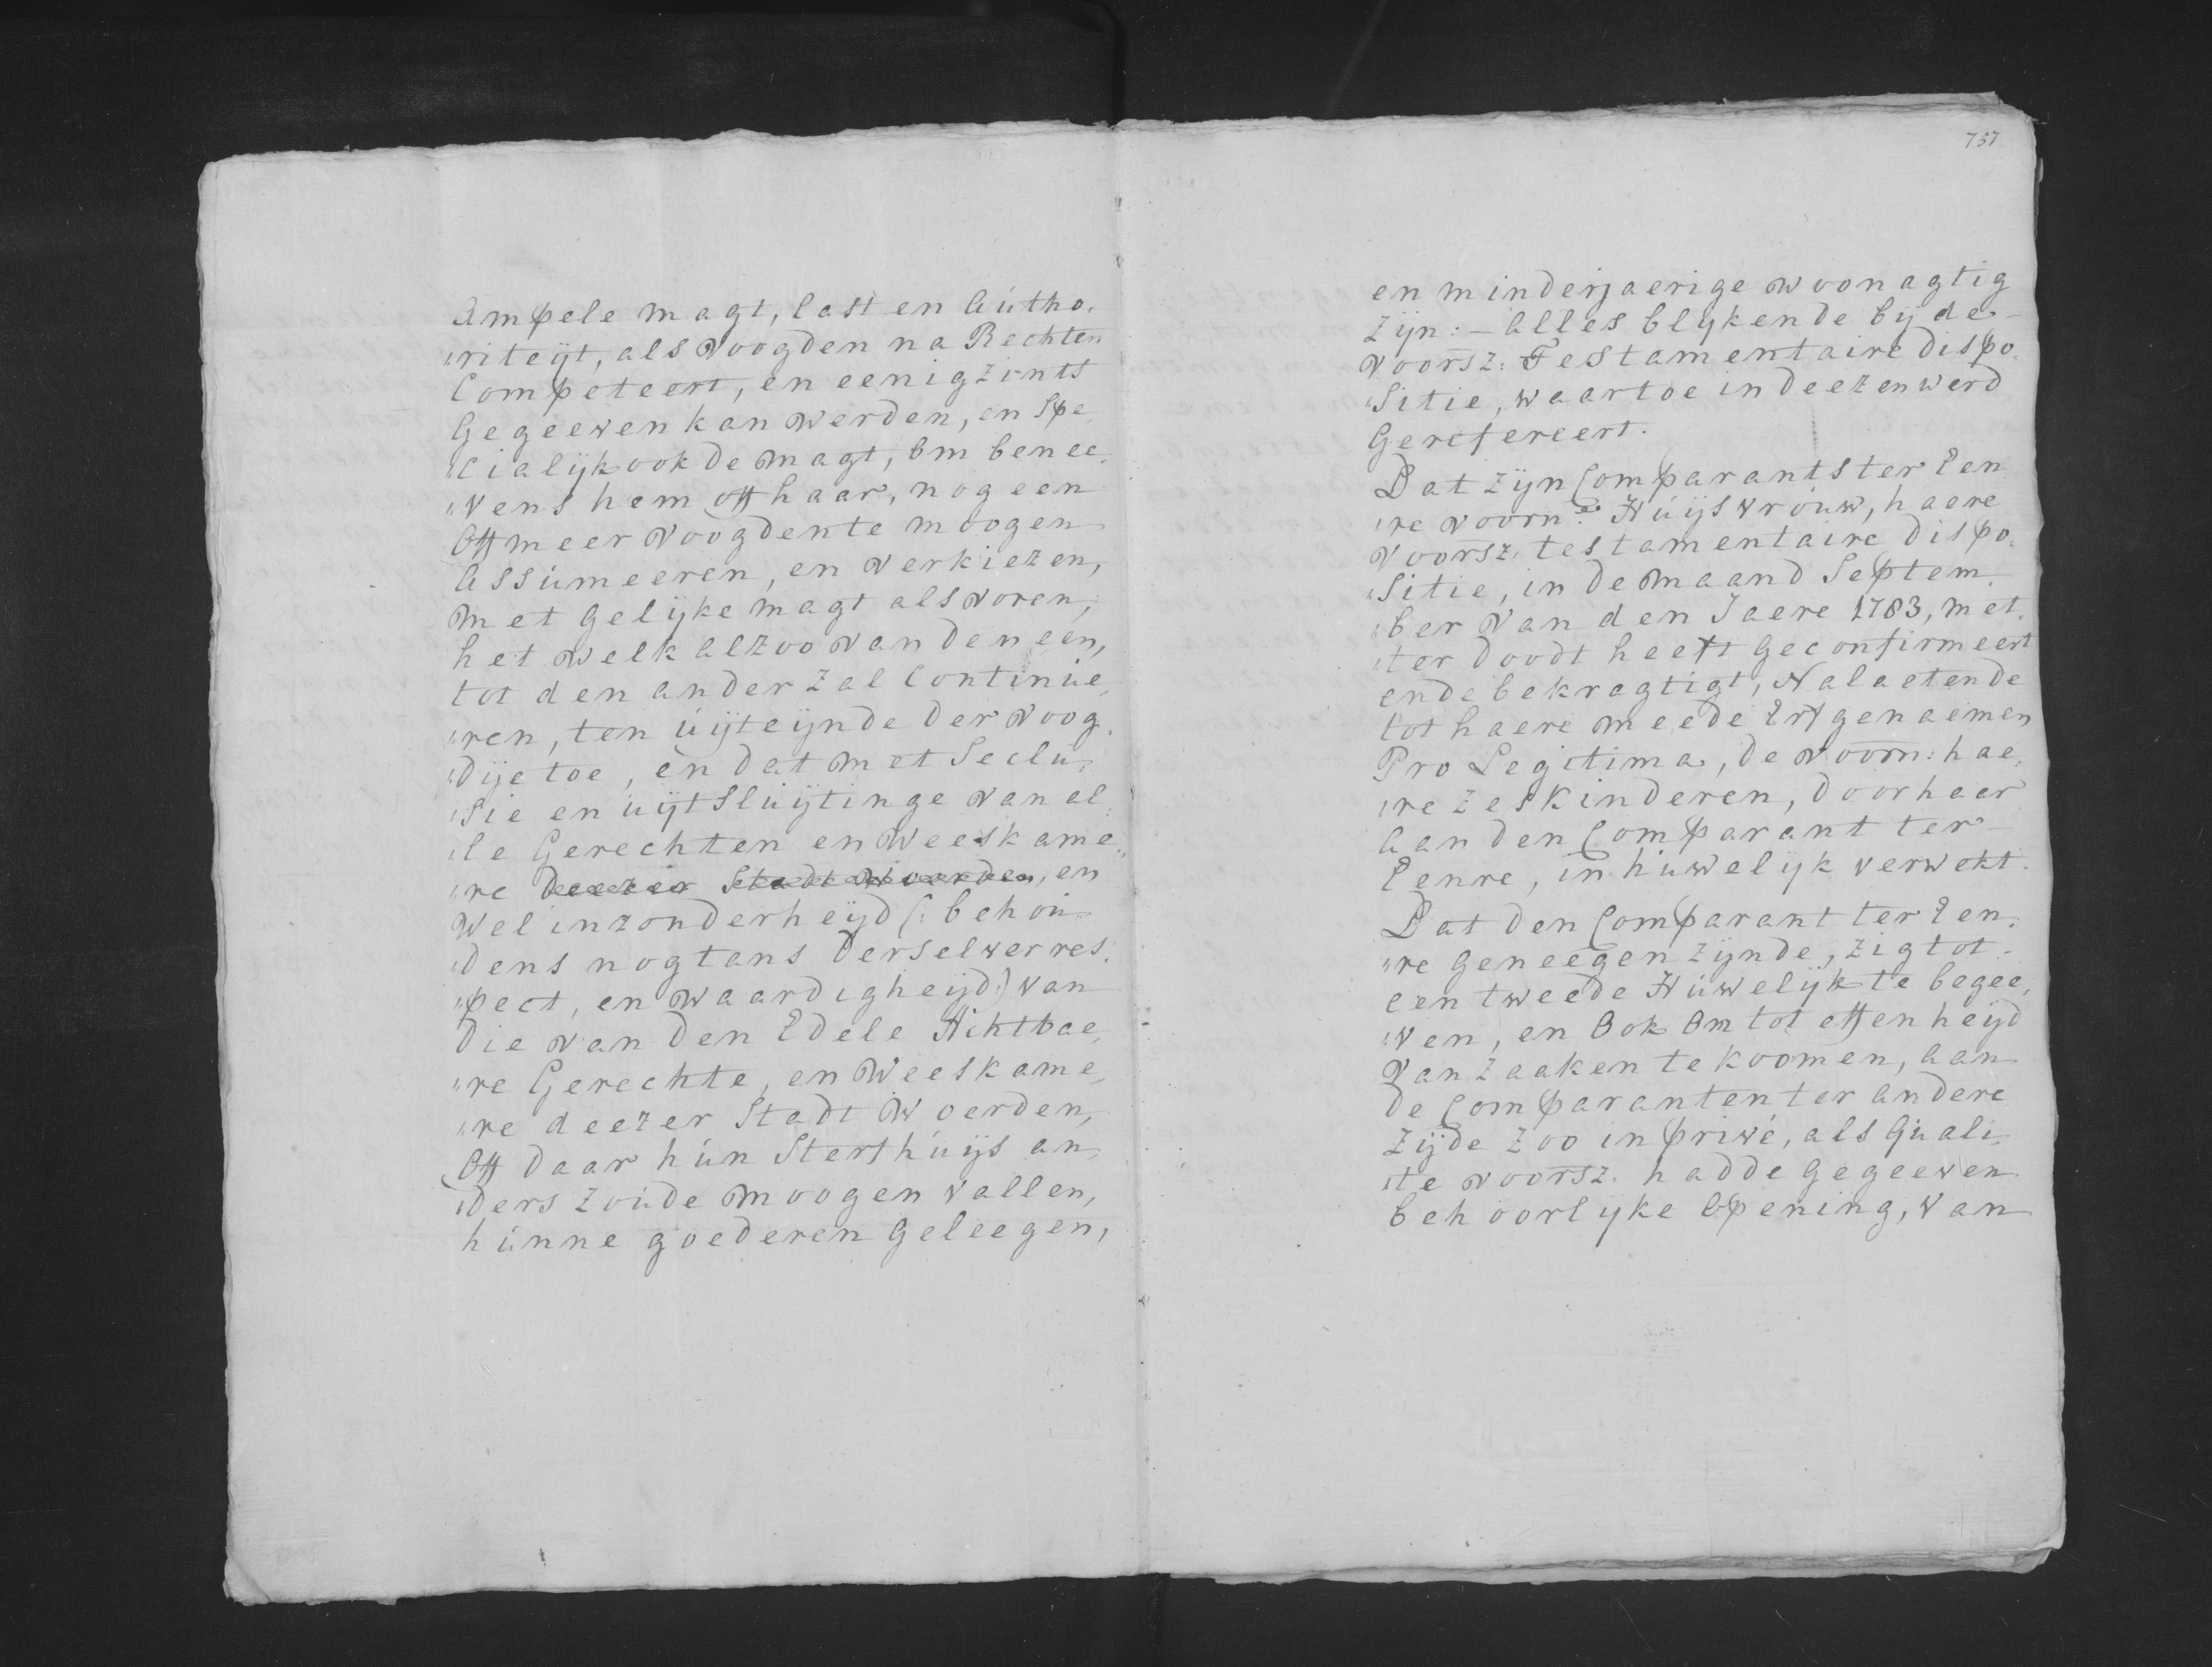 Ampele magt, last en Autho„
„riteijt, als Voogden na Rechten
Competeert, en eenigzints
Gegeeven kan werden, en Spe„
„cialijk ook de magt, om benee„
„vens hem off haar, nog een
Off meer Voogden te moogen
Assúmeeren, en Verkiezen,
met Gelijke magt als Voren,
het welk alzoo van den een,
tot den ander zal Continúe„
„ren, ten úijteijnde der Voog„
„dije toe, en dat met Seclu„
„sie en úijtslúijtinge van al„
„le Gerechten en Weeskame„
„re deezer Stadt Woerden, en
Wel inzonderheijd (: behoú„
„dens nogtans derselver res„
„pect, en Waardigheijd:) van
die van den Edele Achtbae„
„re Gerechte, en Weeskame„
„re deezer Stadt Woerden,
Off daar hún Sterfhúijs an„
„ders zoúde moogen vallen,
húnne goederen Geleegen,
757
en minderjaerige woonagtig
Zijn: – Alles blijkende bij de –
Voorsz: Testamentaire dispo„
„sitie, waartoe in deezen werd
Gerefereert.
Dat zijn Comparants ter Een„
„re voorn: Húijsvroúw, haere
voorsz: testamentaire dispo„
„sitie, in de maand Septem„
„ber van den Jaere 1783, met„
„ter doodt heeft Geconfirmeert
ende bekragtigt, Nalaetende
tot haere meede Erfgenaemen
Pro Legitima, de voorn: hae„
„re zes Kinderen, door haar
Aan den Comparant ter
Eenre, in húwelijk verwekt.
Dat den Comparant ter Een„
„re Geneegen zijnde, zig tot
een tweede Húwelijk te begee„
„ven, en Ook Om tot effenheijd
Van Zaaken te Koomen, aan
de Comparanten ter andere
Zijde zoo in privé, als Quali„
„te voorsz. hadde Gegeeven
behoorlijke Opening, van